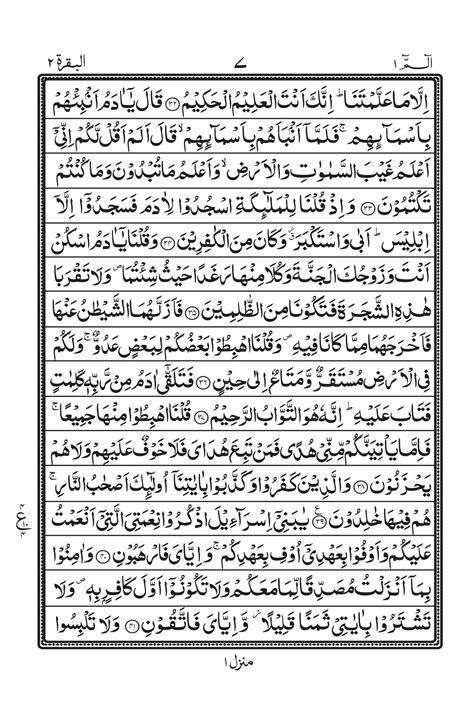 الٓمّٓ ١ ٧ البقرة ٢
اِلَّا مَا عَلَّمْتَنَا ؕ اِنَّكَ اَنْتَ الْعَلِيْمُ الْحَكِيْمُ ﴿۳۲﴾ قَالَ يٰۤاٰدَمُ اَنْۢبِئْهُمْ
بِاَسْمَآىِٕهِمْ ۚ فَلَمَّاۤ اَنْۢبَاَهُمْ بِاَسْمَآىِٕهِمْ ۙ قَالَ اَلَمْ اَقُلْ لَّكُمْ اِنِّيْۤ
اَعْلَمُ غَيْبَ السَّمٰوٰتِ وَالْاَرْضِ ۙ وَاَعْلَمُ مَا تُبْدُوْنَ وَمَا كُنْتُمْ
تَكْتُمُوْنَ ﴿۳۳﴾ وَاِذْ قُلْنَا لِلْمَلٰٓىِٕكَةِ اسْجُدُوْا لِاٰدَمَ فَسَجَدُوْۤا اِلَّاۤ
اِبْلِيْسَ ؕ اَبٰى وَاسْتَكْبَرَ ؗ وَكَانَ مِنَ الْكٰفِرِيْنَ ﴿۳۴﴾ وَقُلْنَا يٰۤاٰدَمُ اسْكُنْ
اَنْتَ وَزَوْجُكَ الْجَنَّةَ وَكُلَا مِنْهَا رَغَدًا حَيْثُ شِئْتُمَا ۪ وَلَا تَقْرَبَا
هٰذِهِ الشَّجَرَةَ فَتَكُوْنَا مِنَ الظّٰلِمِيْنَ ﴿۳۵﴾ فَاَزَلَّهُمَا الشَّيْطٰنُ عَنْهَا
فَاَخْرَجَهُمَا مِمَّا كَانَا فِيْهِ ۪ وَقُلْنَا اهْبِطُوْا بَعْضُكُمْ لِبَعْضٍ عَدُوٌّ ۚ وَلَكُمْ
فِي الْاَرْضِ مُسْتَقَرٌّ وَّمَتَاعٌ اِلٰى حِيْنٍ ﴿۳۶﴾ فَتَلَقّٰۤى اٰدَمُ مِنْ رَّبِّهٖ كَلِمٰتٍ
فَتَابَ عَلَيْهِ ؕ اِنَّهٗ هُوَ التَّوَّابُ الرَّحِيْمُ ﴿۳۷﴾ قُلْنَا اهْبِطُوْا مِنْهَا جَمِيْعًا ۚ
فَاِمَّا يَاْتِيَنَّكُمْ مِّنِّيْ هُدًى فَمَنْ تَبِعَ هُدَايَ فَلَا خَوْفٌ عَلَيْهِمْ وَلَا هُمْ
يَحْزَنُوْنَ ﴿۳۸﴾ وَالَّذِيْنَ كَفَرُوْا وَكَذَّبُوْا بِاٰيٰتِنَاۤ اُولٰٓىِٕكَ اَصْحٰبُ النَّارِ ۚ
هُمْ فِيْهَا خٰلِدُوْنَ ﴿۳۹﴾ يٰبَنِيْۤ اِسْرَآءِيْلَ اذْكُرُوْا نِعْمَتِيَ الَّتِيْۤ اَنْعَمْتُ
عَلَيْكُمْ وَاَوْفُوْا بِعَهْدِيْۤ اُوْفِ بِعَهْدِكُمْ ۚ وَاِيَّايَ فَارْهَبُوْنِ ﴿۴۰﴾ وَاٰمِنُوْا
بِمَاۤ اَنْزَلْتُ مُصَدِّقًا لِّمَا مَعَكُمْ وَلَا تَكُوْنُوْۤا اَوَّلَ كَافِرٍۭ بِهٖ ۪ وَلَا
تَشْتَرُوْا بِاٰيٰتِيْ ثَمَنًا قَلِيْلًا ؗ وَّاِيَّايَ فَاتَّقُوْنِ ﴿۴۱﴾ وَلَا تَلْبِسُوا
منزل ١